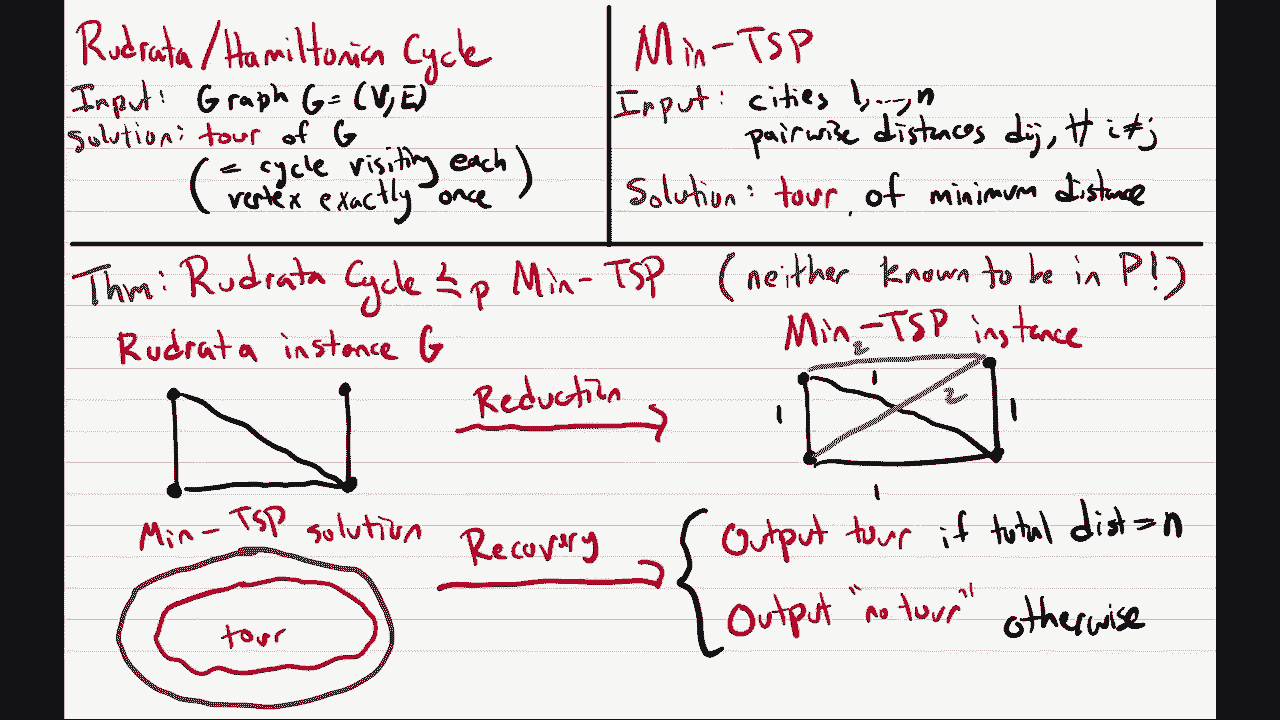 Rudrata/Hamiltonian Cycle
Input: Graph G = (V,E)
Solution: tour of G
(= cycle visiting each
vertex exactly once)
Min-TSP
Input: cities 1,...,n
pairwise distances dij, ∀ i≠j
Solution: tour of minimum distance
Thm: Rudrata Cycle ≤p Min-TSP (neither known to be in P!)
Rudrata instance G
Reduction
Min-TSP instance
2
1
2
1
1
1
Min-TSP solution
tour
Recovery
Output tour if total dist = n
Output "no tour" otherwise